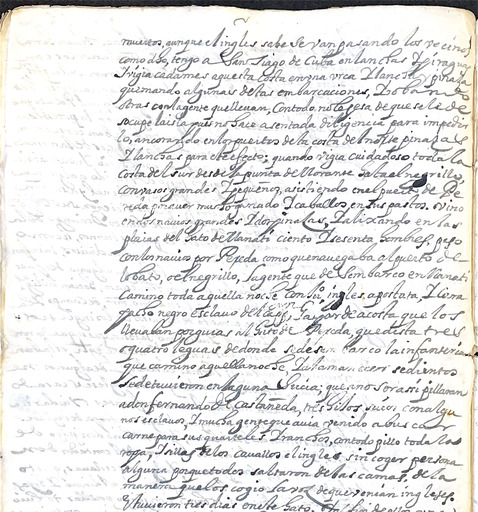 muertos, aunque el ingles sabe se van pasando los vecinos
como dho, tengo a Santiago de Cuba en lanchas Y Piraguas
Y vigia cada mes aquesta costa en una urca Y lancha Y pinaza
quemando algunas destas embarcaciones, Y robando
otras con la gente que lleuan, Con todo no le pesa de que se le de
socupe la isla pues no hace asentada diligencia para impedir
lo, ancorando en los puertos de la costa del norte pinazas
Y lanchas para este efecto, quando vigia cuidadoso toda la
costa del sur desde la punta de Morante hasta el negrillo
con vasos grandes Y pequeños, asistiendo en el puerto de Pe
reda por auer mucho ganado Y caballos en sus pastos. vino
en dos navios grandes Y dos pinazas, Y alixando en las
plaias del hato de Yanati ciento Y sesenta hombres, paso
con los navios por Pereda como que nauegaba al puerto de
lobato, o el negrillo, la gente que desembarco en Yanati
camino toda aquella noche con su ingles, apostata, Y
negro esclauo del Capn Gaspar de acosta que los
lleuaban por guias al hato de Pereda, que dista tres
o quatro leguas de donde se desembarco la infanteria
que camino aquella noche, Y al amanecer sedientos
se detuuieron en laguna sucia; que a no ser assi pillaran
a don fernando de Castañeda, tres hijos suios, con algu
nos esclauos, Y mucha gente que auia venido a buscar
carne para sus quarteles, Y ranchos, con todo pillo toda la
ropa, Y sillas de los cauallos el ingles sin coger persona
alguna porque todos saltaron de las camas, de la
manera que los cogio la voz de que venian ingleses.
Estuuieron tres dias en este hato.